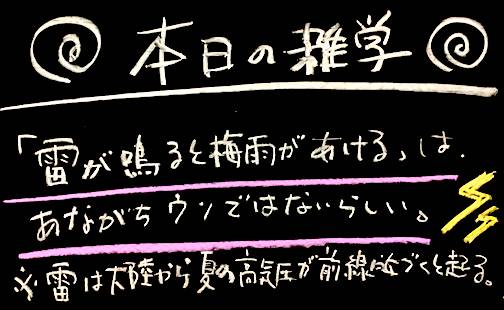 本日の雑学
「雷が鳴ると梅雨があける」は、
あながちウソではないらしい。
※雷は大陸から夏の高気圧が前線に近づくと起る。